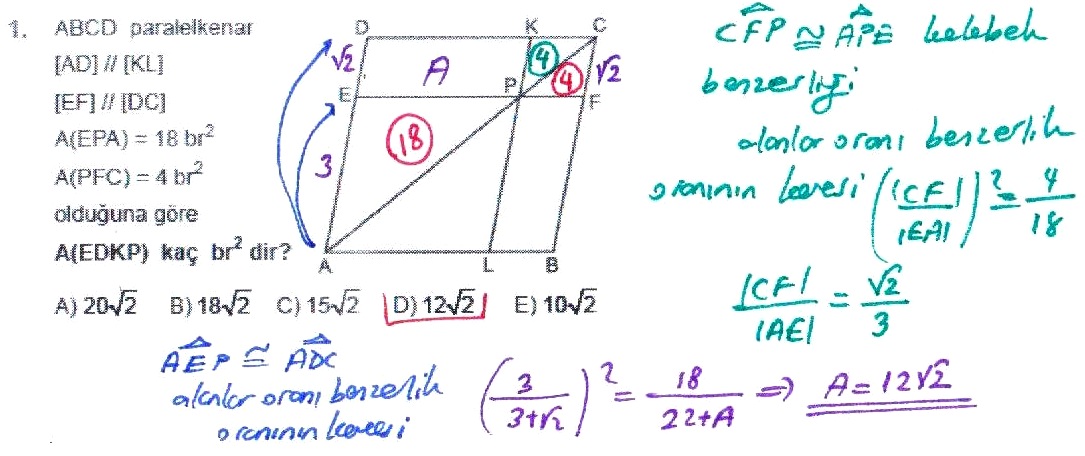 1. ABCD paralelkenar
[AD] // [KL]
[EF] // [DC]
A(EPA) = 18 br²
A(PFC) = 4 br²
olduğuna göre
A(EDKP) kaç br² dir?
A) 20√2 B) 18√2 C) 15√2 D) 12√2 E) 10√2
D K C
√2 A 4 √2
E P 4 F
3 18
A L B
CFP ≅ APE kelebek
benzerliği
alanlar oranı benzerlik
oranının karesi (|CF| / |EA|)² = 4/18
|CF| / |AE| = √2 / 3
AEP ≅ ADC
alanlar oranı benzerlik
oranının karesi
(3 / 3+√2)² = 18 / 22+A ⇒ A = 12√2